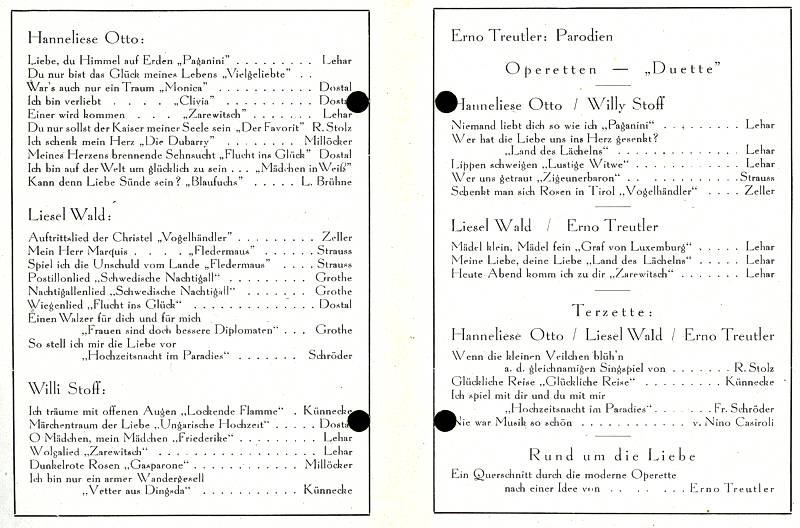 Hanneliese Otto:
Liebe, du Himmel auf Erden „Paganini“ . . . . . . . . . Lehar
Du nur bist das Glück meines Lebens „Vielgeliebte“ . .
War's auch nur ein Traum „Monica“ . . . . . . . . . . Dostal
Ich bin verliebt . . . . „Clivia“ . . . . . . . . . Dostal
Einer wird kommen . . . „Zarewitsch“ . . . . . . . Lehar
Du nur sollst der Kaiser meiner Seele sein „Der Favorit“ R. Stolz
Ich schenk mein Herz „Die Dubarry“ . . . . . . . . Millöcker
Meines Herzens brennende Sehnsucht „Flucht ins Glück“ Dostal
Ich bin auf der Welt um glücklich zu sein . . . „Mädchen in Weiß“
Kann denn Liebe Sünde sein? „Blaufuchs“ . . . . . L. Brühne
Liesel Wald:
Auftrittslied der Christel „Vogelhändler“ . . . . . . . . . Zeller
Mein Herr Marquis . . . . „Fledermaus“ . . . . . . Strauss
Spiel ich die Unschuld vom Lande „Fledermaus“ . . . . Strauss
Postillonlied „Schwedische Nachtigall“ . . . . . . . . . Grothe
Nachtigallenlied „Schwedische Nachtigall“ . . . . . . . Grothe
Wiegenlied „Flucht ins Glück“ . . . . . . . . . . . . Dostal
Einen Walzer für dich und für mich
„Frauen sind doch bessere Diplomaten“ . . . Grothe
So stell ich mir die Liebe vor
„Hochzeitsnacht im Paradies“ . . . . . . . Schröder
Willi Stoff:
Ich träume mit offenen Augen „Lockende Flamme“ . Künnecke
Märchentraum der Liebe „Ungarische Hochzeit“ . . . . . Dostal
O Mädchen, mein Mädchen „Friederike“ . . . . . . . . . Lehar
Wolgalied „Zarewitsch“ . . . . . . . . . . . . . . . . Lehar
Dunkelrote Rosen „Gasparone“ . . . . . . . . . . . Millöcker
Ich bin nur ein armer Wandergesell
„Vetter aus Dingsda“ . . . . . . . . . . Künnecke
Erno Treutler: Parodien
Operetten — „Duette”
Hanneliese Otto / Willy Stoff
Niemand liebt dich so wie ich „Paganini“ . . . . . . . . Lehar
Wer hat die Liebe uns ins Herz gesenkt?
„Land des Lächelns“ . . . . . . . . . . . . . Lehar
Lippen schweigen „Lustige Witwe“ . . . . . . . . . . . Lehar
Wer uns getraut „Zigeunerbaron“ . . . . . . . . . . . Strauss
Schenkt man sich Rosen in Tirol „Vogelhändler“ . . . . Zeller
Liesel Wald / Erno Treutler
Mädel klein, Mädel fein „Graf von Luxemburg“ . . . . . Lehar
Meine Liebe, deine Liebe „Land des Lächelns“ . . . . . Lehar
Heute Abend komm ich zu dir „Zarewitsch“ . . . . . . . Lehar
Terzette:
Hanneliese Otto / Liesel Wald / Erno Treutler
Wenn die kleinen Veilchen blüh'n
a. d. gleichnamigen Singspiel von . . . . . . . R. Stolz
Glückliche Reise „Glückliche Reise“ . . . . . . . . . Künnecke
Ich spiel mit dir und du mit mir
„Hochzeitsnacht im Paradies“ . . . . . . . Fr. Schröder
Nie war Musik so schön . . . . . . . . . . . . v. Nino Casiroli
Rund um die Liebe
Ein Querschnitt durch die moderne Operette
nach einer Idee von . . . . . . . Erno Treutler